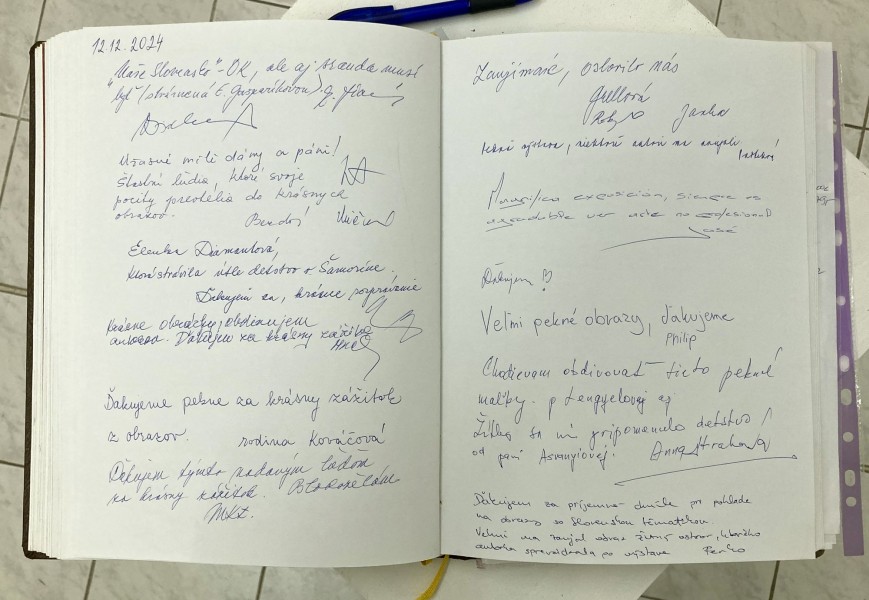 12.12.2024
"Naše Slovensko" - OK, ale aj sranda musí
byť (stvárnená E. Gasparíkovou).
Úžasné milé dámy a páni!
Šťastní ľudia, ktoré svoje
pocity prevtélia do krásnych
obrazov.
Elenka Diamantová,
ktorá strávila útle detstvo v Šamoríne.
Ďakujem za, krásne rozprávanie
Krásne obrázky, obdivujem
autorov. Ďakujem za krásny zážitok
Ďakujeme pekne za krásny zážitok
z obrazov. rodina Kováčová
Ďekujem týmto nadaným ľuďom
za krásny zážitok.
MKL.
Zaujímavé, oslovilo nás
Janka
výstava, niektoré ma
exposición, siempre es
agradable ver arte no profesional
José
Ďakujem
Veľmi pekné obrazy, ďakujeme
Philip
Chodievam obdivovať tieto pekné
maľby. p Lengyelovej aj
mi pripomenulo detstvo!
od pani Asványiovej. Anna Straková
Ďakujem za príjemné chvíle pri pohľade
na obrazy so slovenskou tématikou.
Veľmi ma zaujal obraz žitný ostrov, ktorého
autorka sprevádzala po výstave